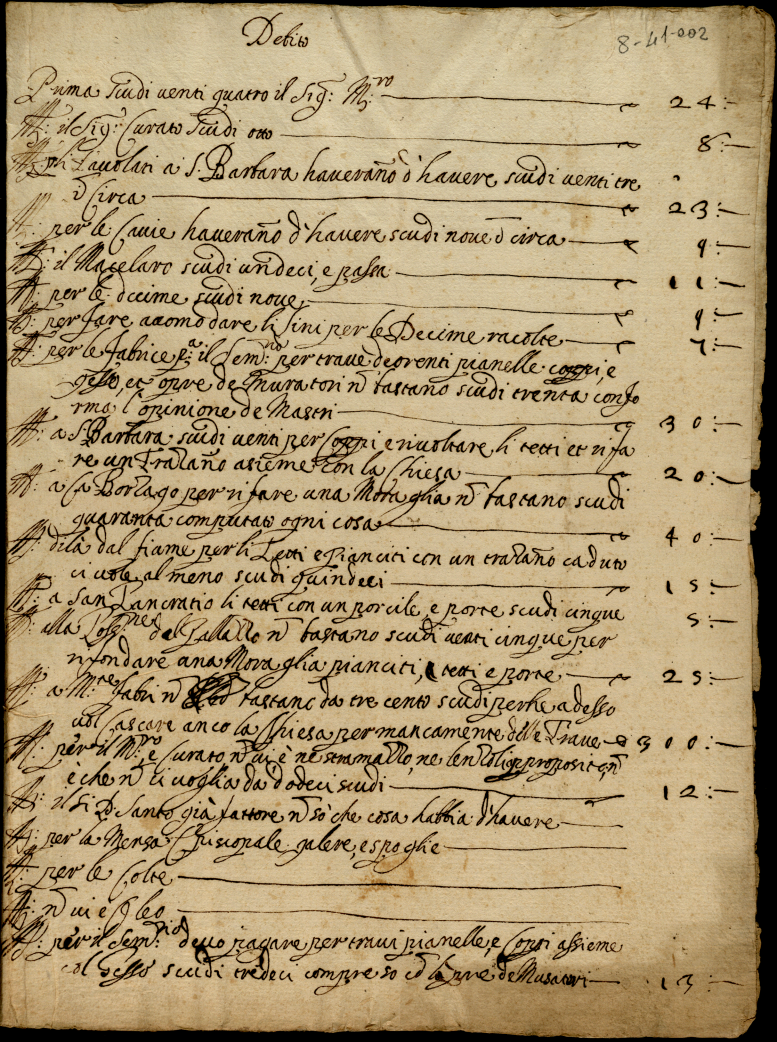 Debito
8-41-002
Prima scudi venti quatro il Sig: M:ro 24:
It: il Sig: Curato scudi otto 8:
It: gli Lavolati a S. Barbara haverano d'havere scudi venti tre
ò Circa 23:
It: per le Cavie haverano d'havere scudi nove ò circa 9:
It: il Macelaro scudi undeci, e passa 11:
It: per le decime scudi nove 9:
It: per fare accomodare li Tini per le Decime racolte 7:
It: per le fabrice p:a il Sem:rio per trave, deorenti pianelle coppi, e
gesso, et opre de Muratori n̄ bastano scudi trenta confo
rma l'opinione de Mastri 30:
It: a S. Barbara scudi venti per Coppi e rivoltare li tetti et rifa
re un Trazano asieme con la Chiesa 20:
It: a Ca Borzago per rifare una Moraglia n̄ bastano scudi
quaranta computato ogni cosa 40:
It: di là dal fiame per li Tetti e pianciti con un trazano caduto
ci vole al meno scudi quindeci 15:
It: a San Pancratio li tetti con un porcile, e porte scudi cinque 5:
It: alla Poss:ne del Zallallo n̄ bastano scudi venti cinque per
rifondare una Moraglia pianciti, tetti e porte 25:
It: a M:te fabri n̄ bastano da tre cento scudi perhe adesso
vol Cascare anco la Chiesa per mancamente delle Trave 300:
It: per il M:ro, e Curato n̄ vi è ne stramazzo, ne lenzoli proposito, n̄
è che n̄ ci voglia da dodeci scudi 12:
It: il Si D. Santo già fattore n̄ sò che cosa habbia d'havere
It: per la Mensa Episcopale galere, e spoglie
It: per le Colte
It: n̄ vi è Oleo
It: per il Sem:rio devo pagare per travi pianelle, e Coppi assieme
col gesso scudi tredeci compreso cō l'opre de Muratori 13: